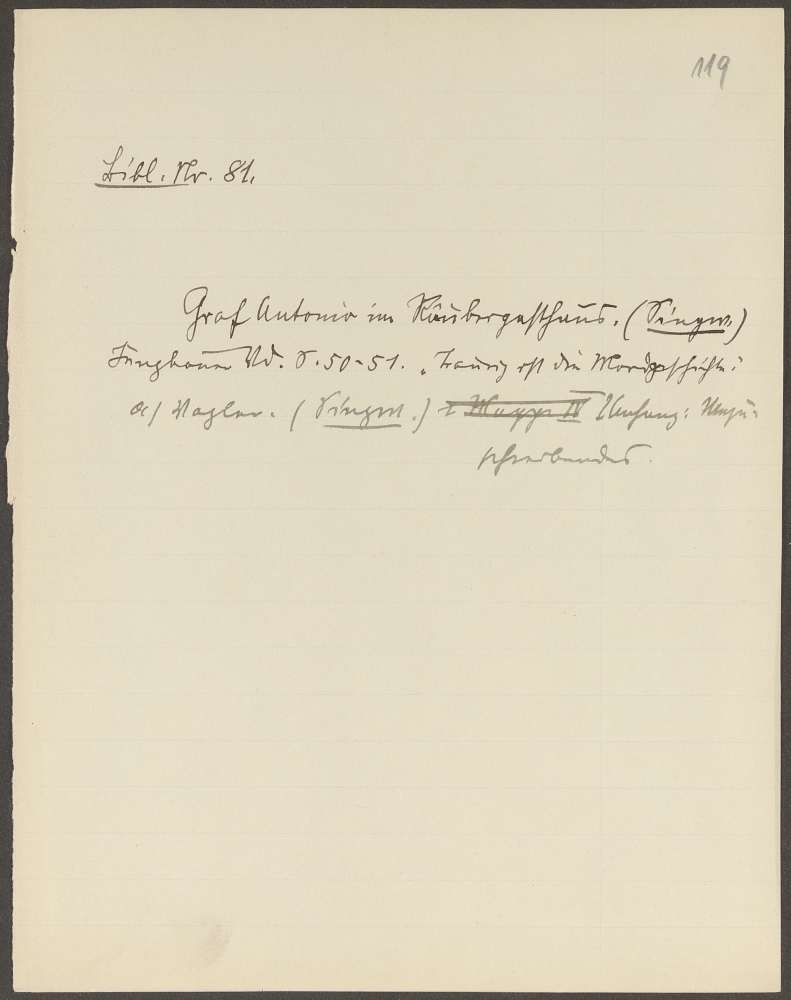 119
Bibl. Nr. 81.
Graf Antonio im Räubergasthaus. (Singw.)
Jungbauer Bd. S. 50-51. "Traurig ist die Mordgeschichte"
a) Vogler. (Singw.) Mappe IV Umfang:
schreibendes.